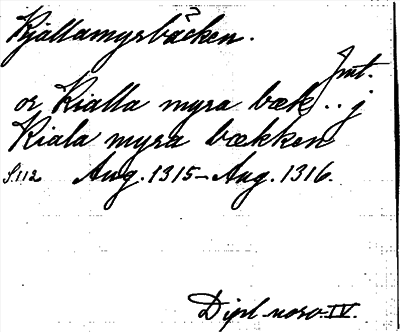 Kjällamyrbäcken.
Jmt.
or Kialla myra bæk .. j
Kiala myra bækken
S. 112 Aug. 1315 – Aug. 1316.
Dipl. norv. IV.